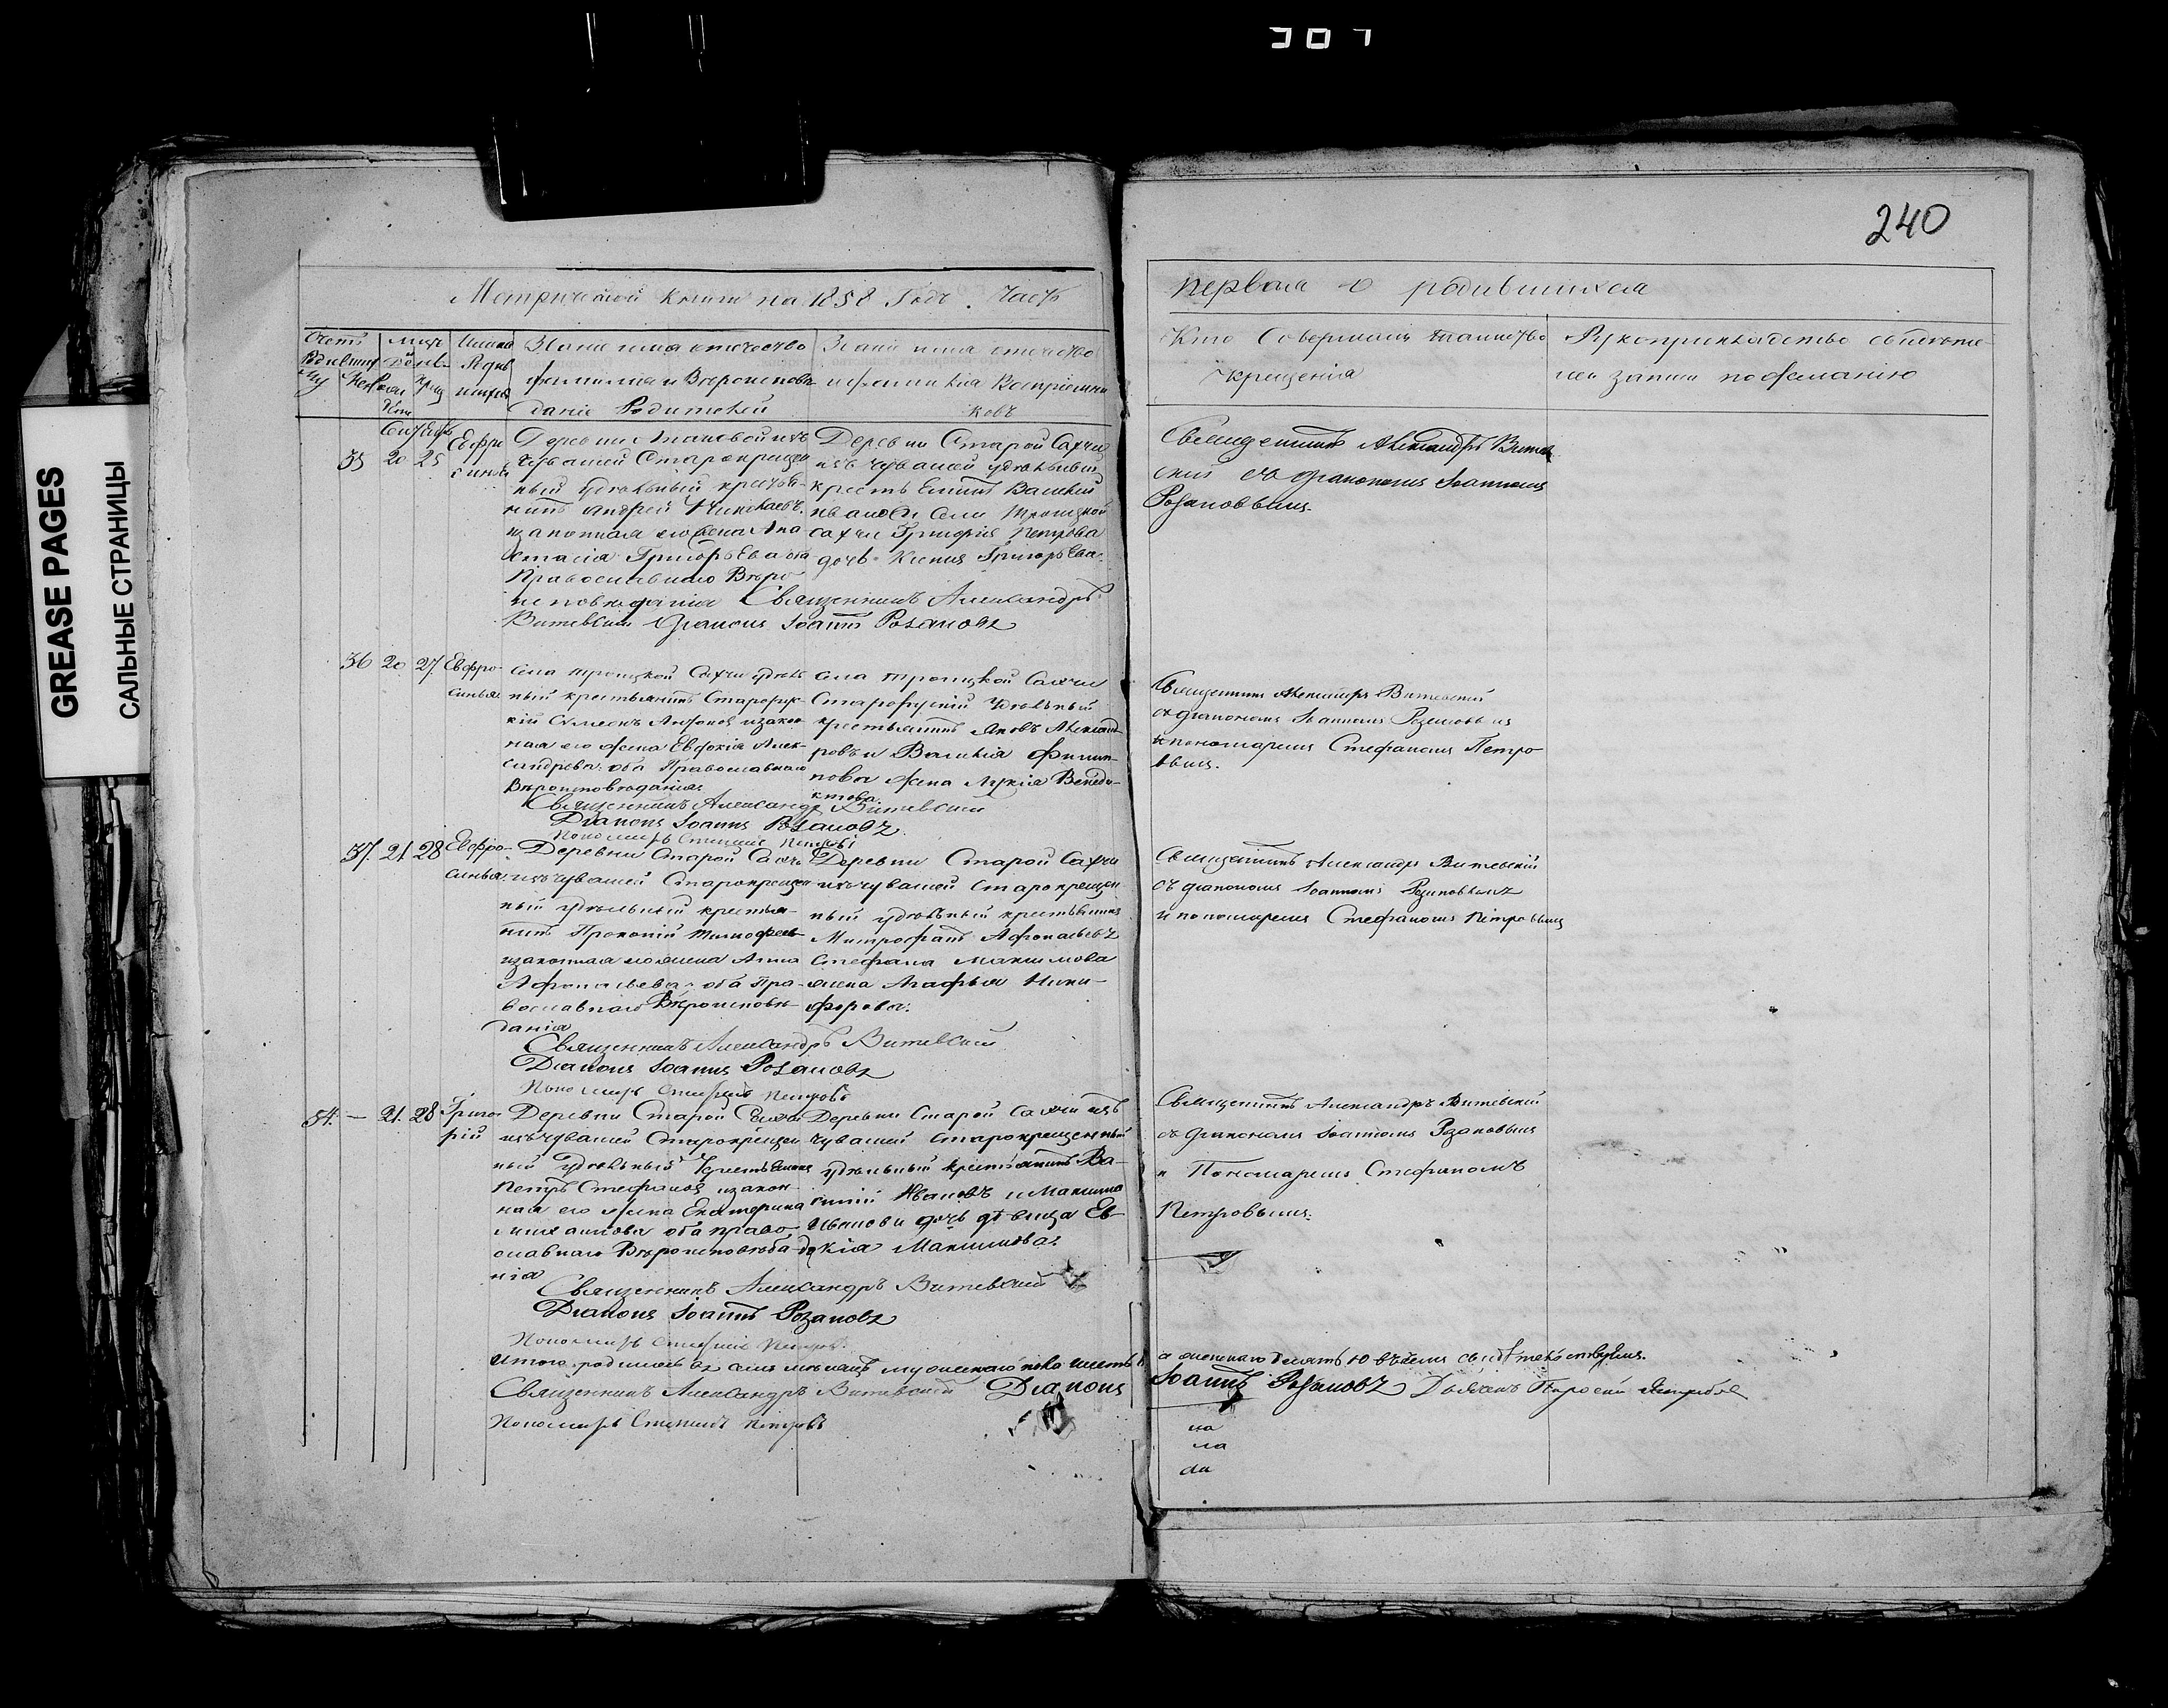 307
GREASE PAGES
САЛЬНЫЕ СТРАНИЦЫ
240
Метрической книги на 1858 Годъ. Часть
первая о родившихся
Звание имя отечество
фамилия и Вероисповѣ
дание Родителей
Звание имя отчество
и фамилия Восприемни
ковъ
Кто Совершалъ таинство
крещенія
Рукоприкладство свидѣте
лей записи по желанію
35 20 25 Евфро
синья
чувашей Старокрещен
ный удѣльный крестья-
нинъ Андрей Николаевъ
и законная его жена Ана
стасія Григорьева оба
Православнаго Вѣро
исповѣданія Священникъ Александръ
Витевскій Діаконъ Іоаннъ Розановъ
Деревни Старой Сахчи
изъ чувашей удѣльный
Ивановъ и Села Троицкой
Сахчи Григорія Петрова
дочь Ксенія Григорьева
Священникъ Александръ Витев
скій съ діакономъ Іоанномъ
Розановымъ.
36 20 27 Евфро-
синья
Села Троицкой Сахчи удѣль
ный крестьянинъ Старорус-
кій Симеонъ Антоновъ и закон
ная его жена Евдокія Алек-
сандрова оба Православнаго
Вѣроисповѣданія
Священникъ Александръ Витевскій
Діаконъ Іоаннъ Розановъ
Пономарь Стефанъ Петровъ
Села Троицкой Сахчи
Старорускій Удѣльный
крестьянинъ Яковъ Александ
ровъ и Василія Филип-
пова жена Лукія Венеди-
ктова.
Священникъ Александръ Витевскій
съ діакономъ Іоанномъ Розановымъ
и пономаремъ Стефаномъ Петро
вымъ.
37. 21 28 Евфро-
синья
Деревни Старой Сахчи
изъ чувашей Старокрещен
ный удѣльный крестья-
нинъ Прокопій Тимофеевъ
и законная его жена Анна
Афонасьева оба Пра-
вославнаго Вѣроисповѣ-
данія
Священникъ Александръ Витевскій
Діаконъ Іоаннъ Розановъ
Пономарь Стефанъ Петровъ
Деревни Старой Сахчи
изъ чувашей старокрещен
ный удѣльный крестьянинъ
Митрофанъ Афонасьевъ
Стефана Максимова
жена Агафья Ники-
форова.
Священникъ Александръ Витевскій
съ діакономъ Іоанномъ Розановымъ
и пономаремъ Стефаномъ Петровымъ
34. — 21. 28 Григо
рій
Деревни Старой Сахчи
изъ чувашей Старокрещен
ный удѣльный Крестьянинъ
Петръ Стефановъ и закон
ная его жена Екатерина
оба право
славнаго Вѣроисповѣда
нія
Священникъ Александръ Витевскій
Діаконъ Іоаннъ Розановъ
Пономарь Стефанъ Петровъ
Деревни Старой Сахчи изъ
чувашей старокрещенный
удѣльный крестьянинъ Ва-
силій Ивановъ и Максима
Иванова дочь дѣвица Ев-
докія Максимова.
Священникъ Александръ Витевскій
съ діакономъ Іоанномъ Розановымъ
и Пономаремъ Стефаномъ
Петровымъ.
Итого родилось въ семъ мѣсяцѣ мужескаго пола шесть
а женскаго десять 10 въ чемъ свидѣтельствуемъ.
Священникъ Александръ Витевскій Діаконъ
Іоаннъ Розановъ
Пономарь Стефанъ Петровъ